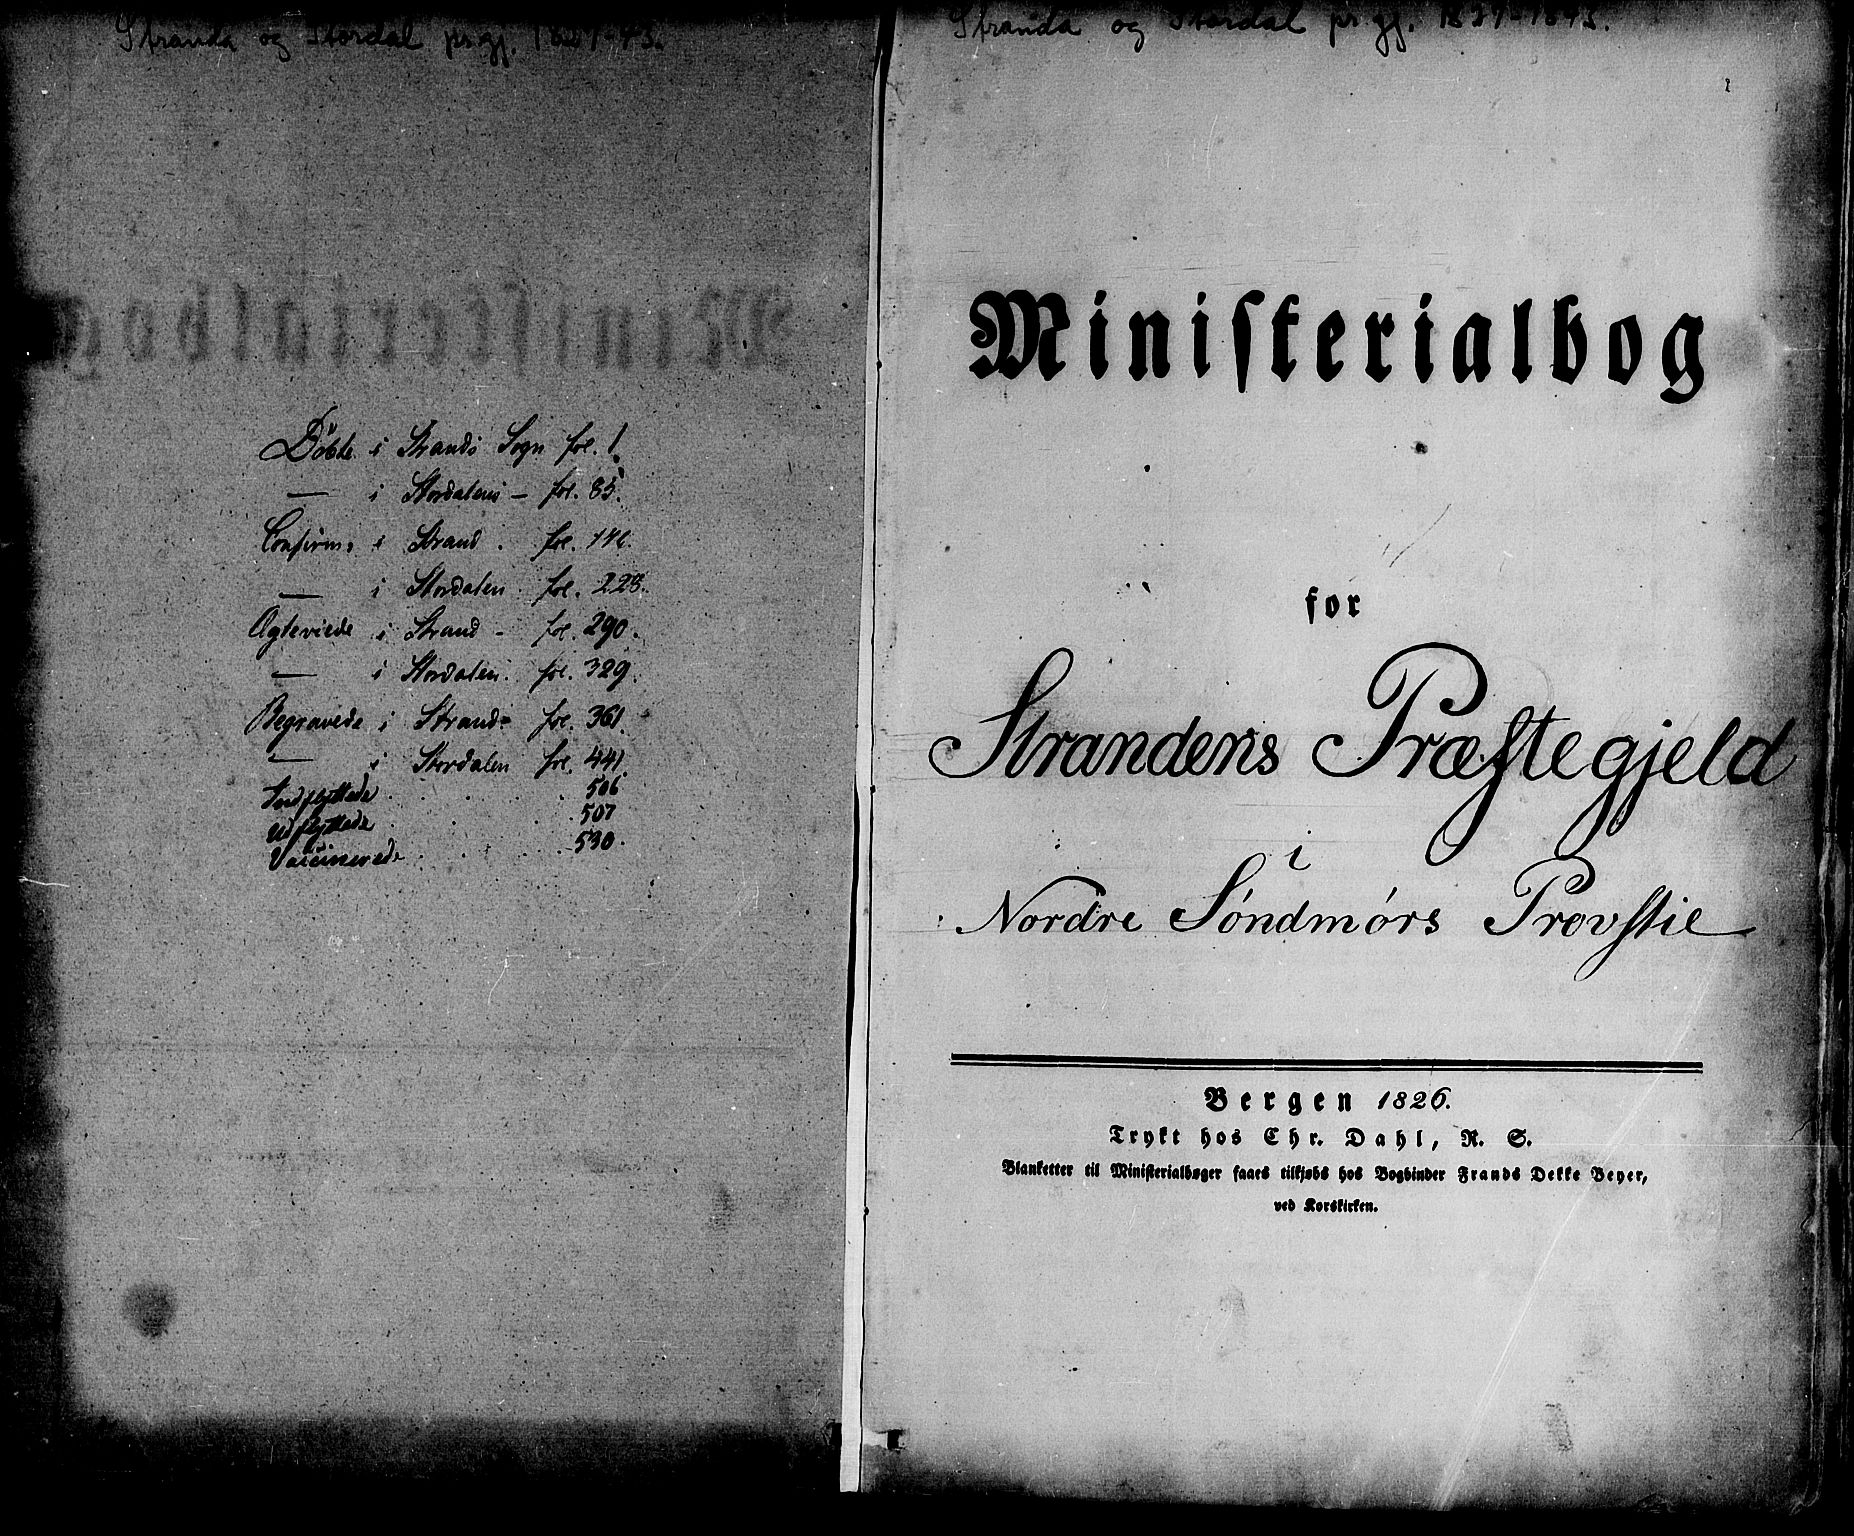 Stranda og Stordal prgj. 1827-43.
Döbte i Strands Sogn fol. 1.
— i Stordalens — fol. 85.
Confirm. i Strand. fol. 146.
— i Stordalen. fol. 223.
Ægteviede i Strand - fol. 290.
— i Stordalen. fol. 329.
Begravede i Strand - fol. 361.
— i Stordalen fol. 441.
Indflyttede . . . . 506
Udflyttede . . . . 507
Vaccinerede . . . . 530.
Stranda og Stordal pr.gj. 1827-1843.
Ministerialbog
for
Strandens Præstegjeld
i
Nordre Søndmørs Provstie
Bergen 1826.
Trykt hos Chr. Dahl, R. S.
Blanketter til Ministerialbøger faaes tilkjøbs hos Bogbinder Frands Dekke Beyer,
ved Korskirken.